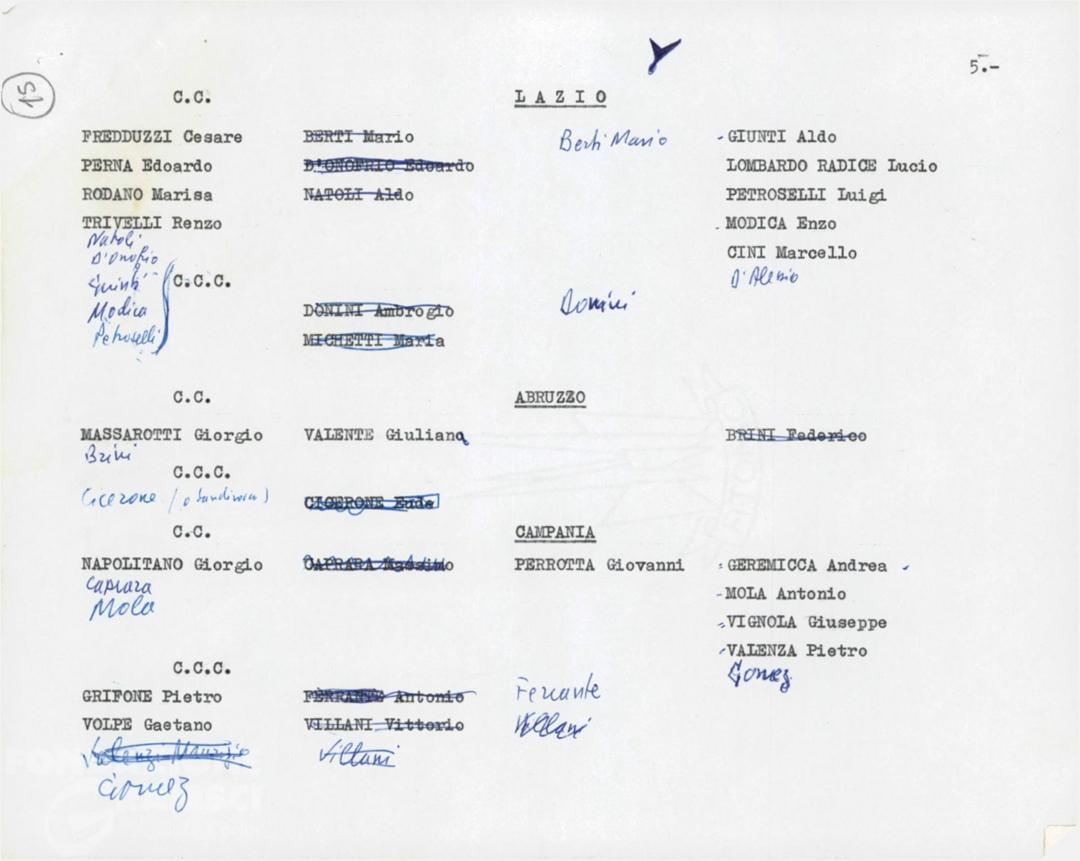 5.-
15
C.C. LAZIO
FREDDUZZI Cesare BERTI Mario Berti Mario - GIUNTI Aldo
PERNA Edoardo D'ONOFRIO Edoardo LOMBARDO RADICE Lucio
RODANO Marisa NATOLI Aldo PETROSELLI Luigi
TRIVELLI Renzo . MODICA Enzo
Natoli CINI Marcello
D'Onofrio D'Alessio
C.C.C.
Modica DONINI Ambrogio Donini
Petroselli MICHETTI Maria
C.C. ABRUZZO
MASSAROTTI Giorgio VALENTE Giuliana BRINI Federico
Brini
C.C.C.
Cicerone (o CICERONE
C.C. CAMPANIA
NAPOLITANO Giorgio CAPRARA Massimo PERROTTA Giovanni - GEREMICCA Andrea
Caprara - MOLA Antonio
Mola - VIGNOLA Giuseppe
- VALENZA Pietro
C.C.C. Gomez
GRIFONE Pietro FERRANTE Antonio Ferrante
VOLPE Gaetano VILLANI Vittorio Villani
Valenzi Maurizio Villani
Gomez